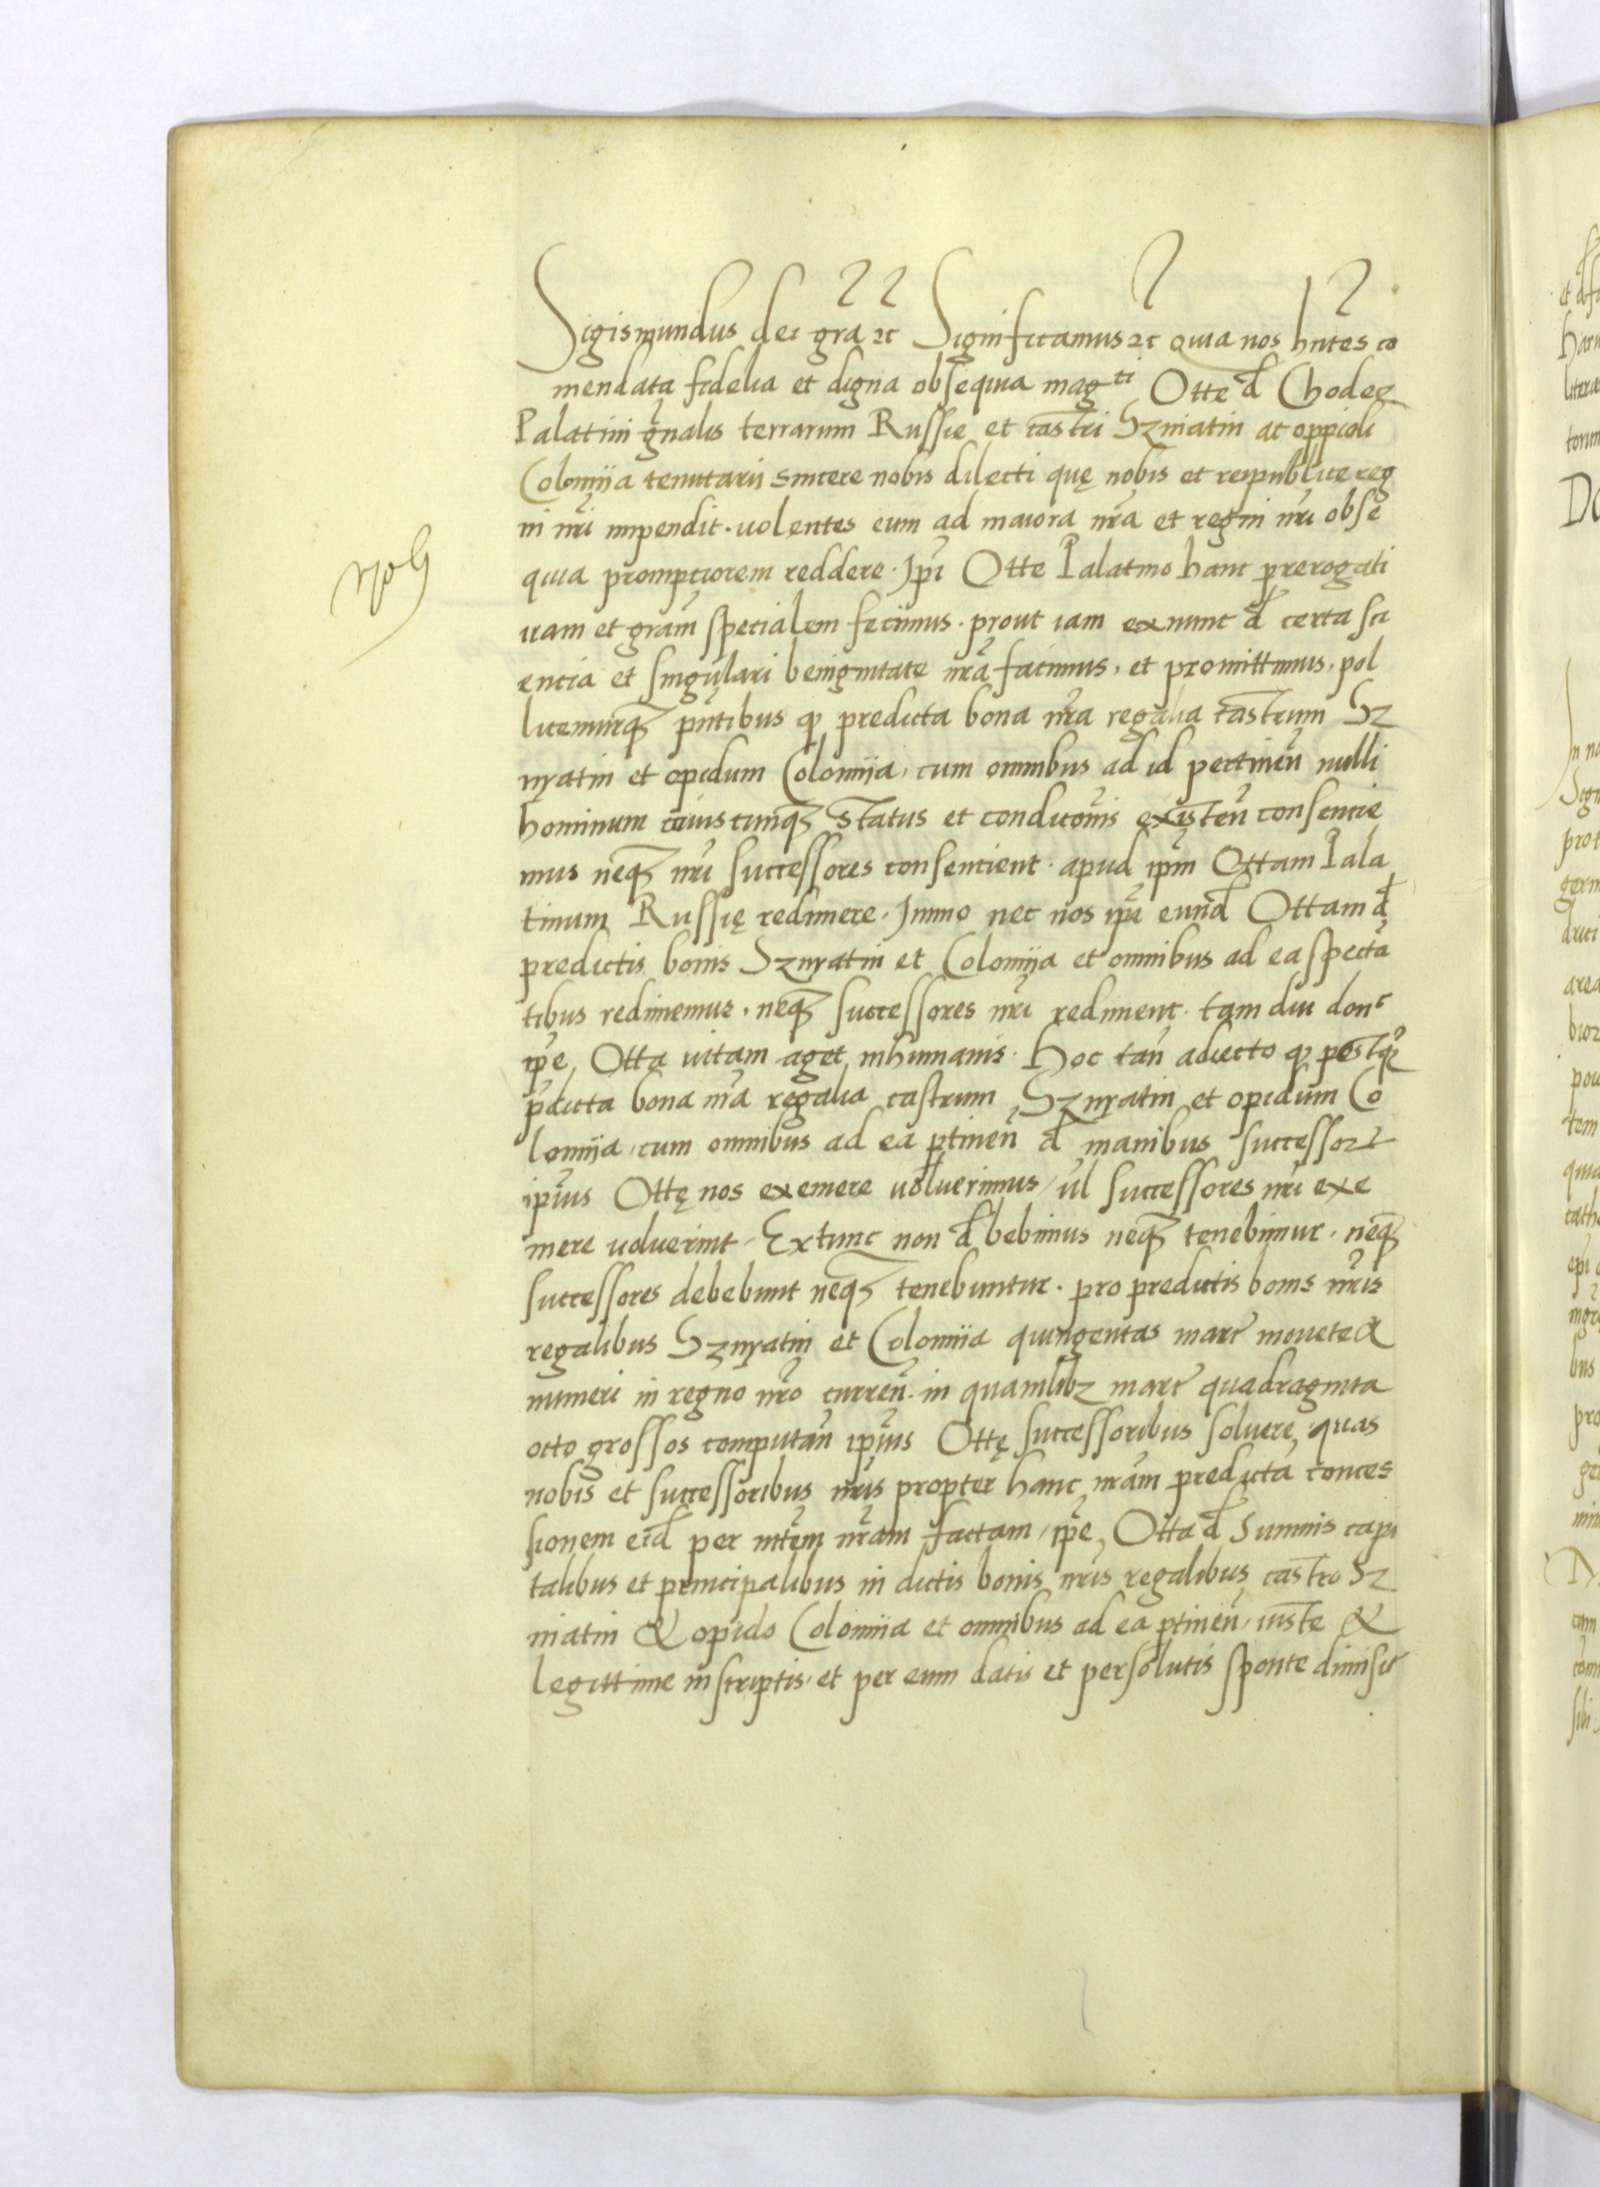 Sigismundus dei gra etc Significamus etc Quia nos hntes co
mendata fidelia et digna obsequia magti Otte d Chodecz
Palatini gnalis terrarum Russie et castri Szniatin ac oppidi
Colomija tenutarii sincere nobis dilecti quę nobis et reipublice reg
ni nri impendit. uolentes eum ad maiora nra et regni nri obse
quia prompciorem reddere. Ipi Otte Palatino hanc prerogati
uam et gram specialem fecimus. prout iam ex nunc d certa sci
encia et singulari benignitate nra facimus, et promittimus, pol
licemurq pntibus q predicta bona nra regalia castrum Sz
nyatin et opidum Colomija, cum omnibus ad id pertinen nulli
hominum cuiuscunq status et condicionis existen consencie
mus neq nri successores consencient. apud ipm Ottam Pala
tinum Russię redimere. Immo nec nos ipi eund Ottam d
predictis bonis Sznyatin et Colomija et omnibus ad ea specta
tibus redimemus. neq successores nri rediment. tam diu donc
ipe Otta uitam aget inhumanis. Hoc tan adiecto q postq
pdicta bona nra regalia castrum Sznyatin et opidum Co
lomija, cum omnibus ad ea ptinen d manibus successor
ipius Ottę nos exemere uoluerimus, ul successores nri exe
mere uoluerint, Extunc non dbebimus neq tenebimur. neq
successores debebunt neq tenebuntur. pro predictis bonis nris
regalibus Sznyatin et Colomija quingentas marc monete &
numeri in regno nro curren. in quamlibz marc quadraginta
octo grossos computan ipius Ottę successoribus soluere, quas
nobis et successoribus nris propter hanc nram predicta conces
sionem eid per mtem nram factam, ipe Otta d Summis capi
talibus et principalibus in dictis bonis nris regalibus castro Sz
niatin & opido Colomija et omnibus ad ea ptinen, iuste &
legittime inscriptis, et per eum datis et persolutis sponte dimisit